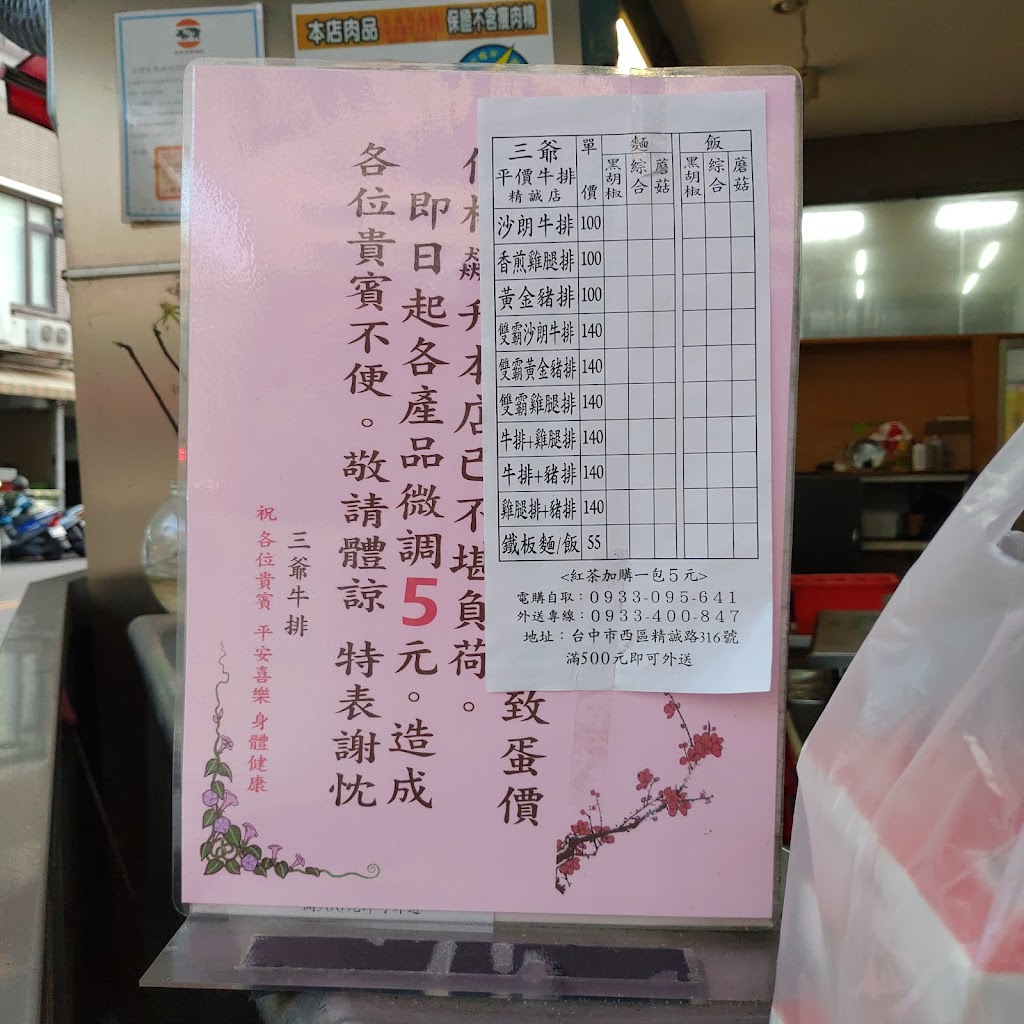 本店肉品
保證不含瘦肉精
三爺
平價牛排
精誠店
單價 麵 飯
黑胡椒 綜合 蘑菇 黑胡椒 綜合 蘑菇
沙朗牛排 100
香煎雞腿排 100
黃金豬排 100
雙霸沙朗牛排 140
雙霸黃金豬排 140
雙霸雞腿排 140
牛排+雞腿排 140
牛排+豬排 140
雞腿排+豬排 140
鐵板麵/飯 55
<紅茶加購一包5元>
電購自取：0933-095-641
外送專線：0933-400-847
地址：台中市西區精誠路316號
滿500元即可外送
致蛋價
升本店已不堪負荷。
即日起各產品微調5元。造成
各位貴賓不便。敬請體諒 特表謝忱
三爺牛排
祝 各位貴賓 平安喜樂 身體健康